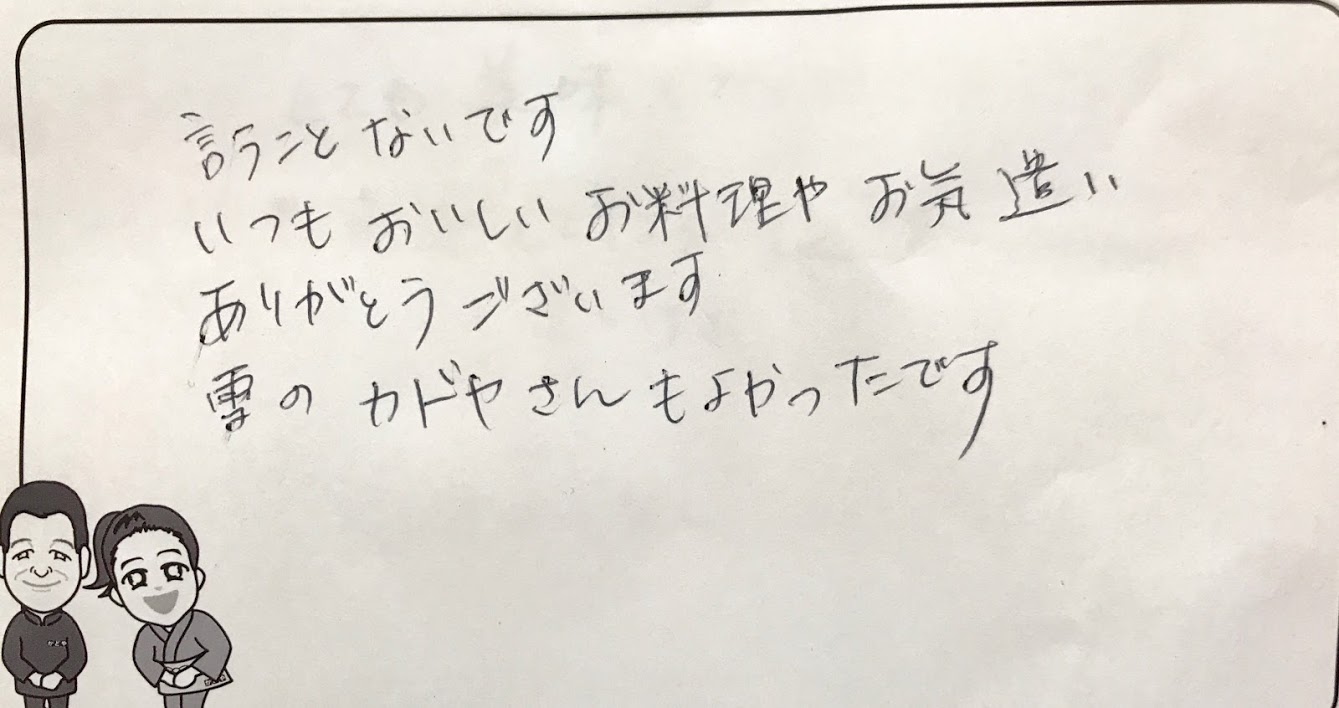 言うことないです
いつもおいしいお料理やお気遣い
ありがとうございます
雪のカドヤさんもよかったです